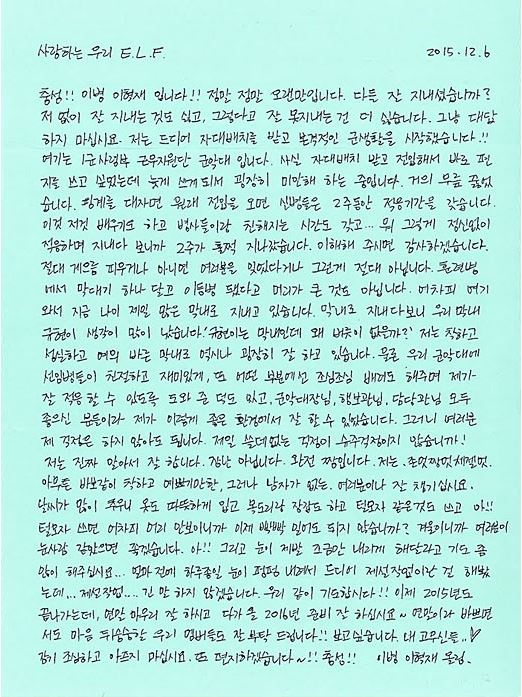 사랑하는 우리 E.L.F. 2015.12.6
충성!! 이병 이혁재 입니다!! 정말 정말 오랜만입니다. 다들 잘 지내셨습니까?
저 없이 잘 지내는 것도 싫고, 그렇다고 잘 못지내는 건 더 싫습니다. 그냥 대답
하지 마십시요. 저는 드디어 자대배치를 받고 본격적인 군생활을 시작했습니다.!!
여기는 1군사령부 근무지원단 군악대 입니다. 사실 자대배치 받고 전입해서 바로 편
지를 쓰고 싶었는데 늦게 쓰게되서 굉장히 미안해 하는 중입니다. 거의 무릎 꿇었
습니다. 핑계를 대자면 원래 전입을 오면 신병들은 2주동안 적응기간을 갖습니다.
이것 저것 배우기도 하고 병사들이랑 친해지는 시간도 갖고... 뭐 그렇게 정신없이
적응하며 지내다 보니까 2주가 훌쩍 지나갔습니다. 이해해 주시면 감사하겠습니다.
절대 게으름 피우거나 아니면 여러분을 잊었다거나 그런게 절대 아닙니다. 훈련병
에서 막대기 하나 달고 이등병 됐다고 머리가 큰 것도 아닙니다. 어차피 여기
와서 지금 나이 제일 많은 막내로 지내고 있습니다. 막내로 지내다보니 우리 막내
규현이 생각이 많이 났습니다. '규현이는 막내인데 왜 버릇이 없을까?' 저는 착하고
성실하고 예의 바른 막내로 역시나 굉장히 잘 하고 있습니다. 물론 우리 군악대에
선임병들이 친절하고 재미있게, 또 어떤 부분에선 조심조심 배려도 해주며 제가
잘 적응 할 수 있도록 도와 준 덕도 있고, 군악대장님, 행보관님, 담당관님 모두
좋으신 분들이라 제가 이렇게 좋은 환경에서 잘 할 수 있었습니다. 그러니 여러분
제 걱정은 하지 않아도 됩니다. 제일 쓸데없는 걱정이 슈주걱정이지 않습니까!
저는 진짜 알아서 잘 합니다. 장난 아닙니다. 완전 짱입니다. 저는. 존멋짱멋세젤멋.
아무튼 바보같이 착하고 예쁘기만한, 그러나 남자가 없는. 여러분이나 잘 챙기십시요.
날씨가 많이 추우니 옷도 따뜻하게 입고 목도리랑 장갑도 하고 털모자 같은것도 쓰고 아!!
털모자 쓰면 어차피 머리 안보이니까 이제 빡빡 밀어도 되지 않습니까? 겨울이니까 여러분이
눈사람 같았으면 좋겠습니다. 아!! 그리고 눈이 제발 조금만 내리게 해달라고 기도 좀
많이 해주십시요... 얼마 전에 하루종일 눈이 펑펑 내려서 드디어 제설작업이란 걸 해봤
는데... 제설작업.... 긴 말 하지 않겠습니다. 우리 같이 기도합시다!! 이제 2015년도
끝나가는데, 연말 마무리 잘 하시고 다가올 2016년 준비 잘 하십시요~ 연말이라 바쁘면
서도 마음 뒤숭숭한 우리 멤버들도 잘 부탁 드립니다!! 보고싶습니다. 내 고무신들..♥
감기 조심하고 아프지 마십시요. 또 편지하겠습니다~!! 충성!! 이병 이혁재 올림.